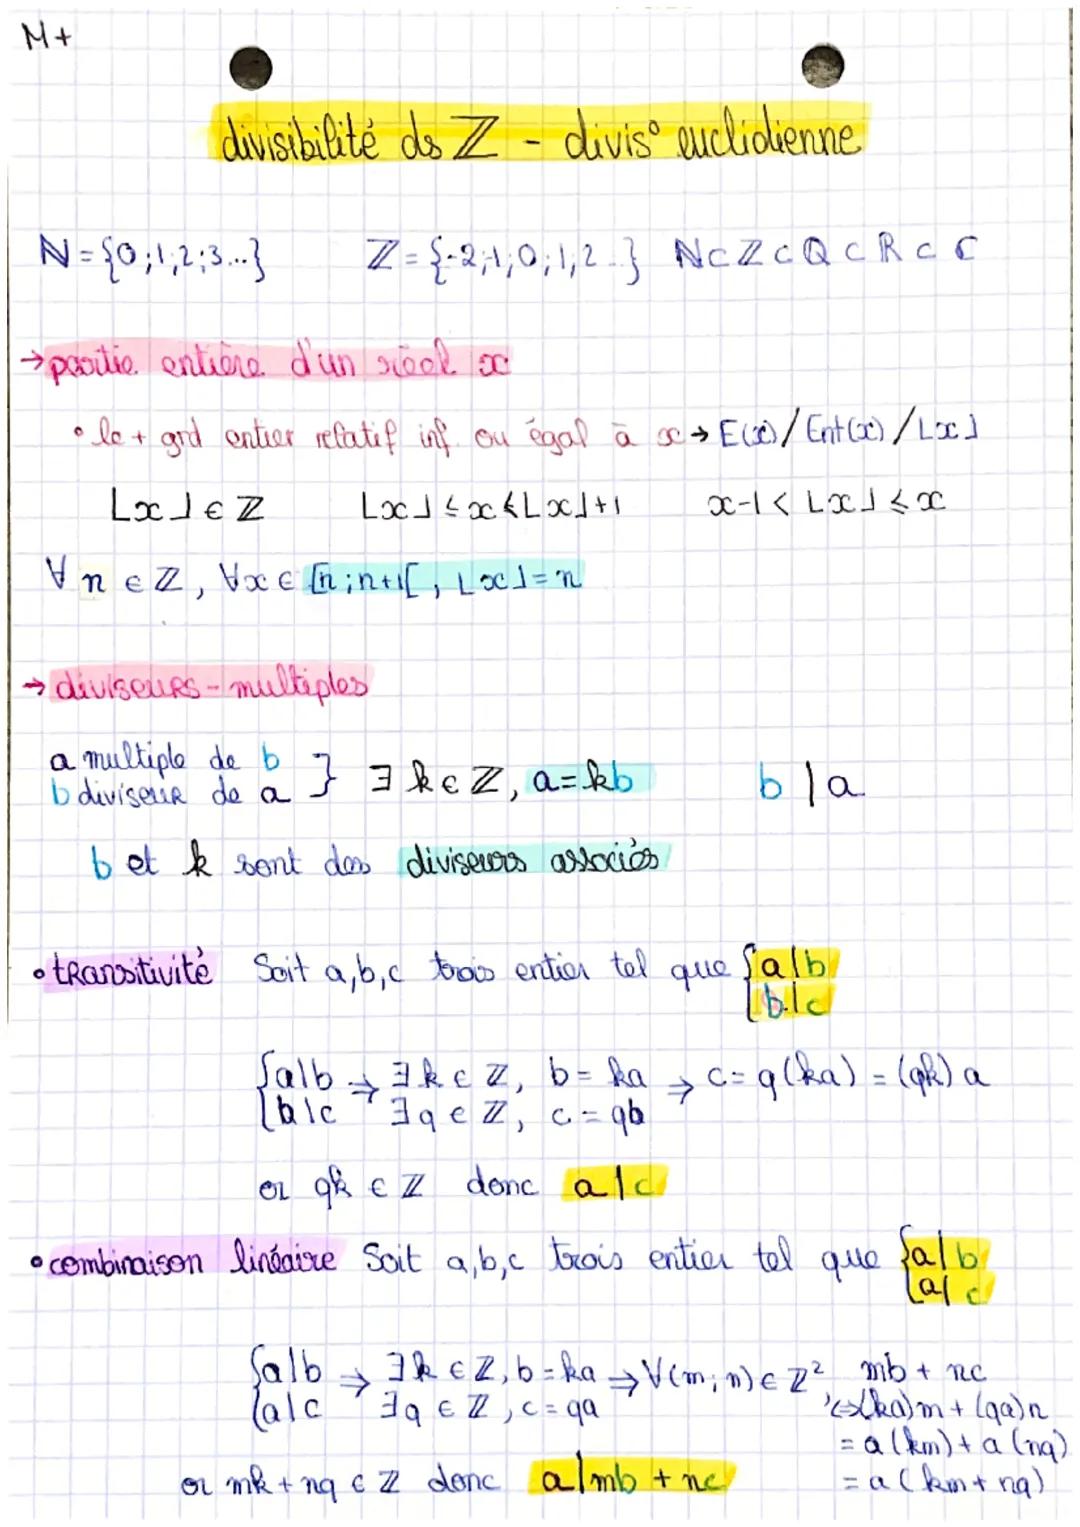 M+
divisibilité ds ℤ - divis° euclidienne
ℕ = {0;1;2;3...} ℤ = {-2;-1;0;1;2...} ℕ⊂ℤ⊂ℚ⊂ℝ⊂ℂ
→ partie entière d'un réel x
• le + grd entier relatif inf ou égal à x → E(x) / Ent(x) / ⌊x⌋
⌊x⌋ ∈ ℤ ⌊x⌋ ≤ x ≤ ⌊x⌋+1 x-1 < ⌊x⌋ ≤ x
∀ n ∈ ℤ, ∀x ∈ [n;n+1[, ⌊x⌋ = n
→ diviseurs - multiples
a multiple de b
b diviseur de a } ∃ k ∈ ℤ, a = kb b | a
b et k sont des diviseurs associés
• transitivité Soit a,b,c trois entier tel que { a|b
b|c
{ a|b → ∃ k ∈ ℤ, b = ka → c = q(ka) = (qk) a
b|c ∃ q ∈ ℤ, c = qb
or qk ∈ ℤ donc a|c
• combinaison linéaire Soit a,b,c trois entier tel que { a|b
a|c
{ a|b → ∃ k ∈ ℤ, b = ka → ∀(m;n) ∈ ℤ² mb + nc
a|c ∃ q ∈ ℤ, c = qa ⇔ (ka)m + (qa)n
= a(km) + a(nq)
or mk + nq ∈ ℤ donc a|mb + nc = a(km + nq)